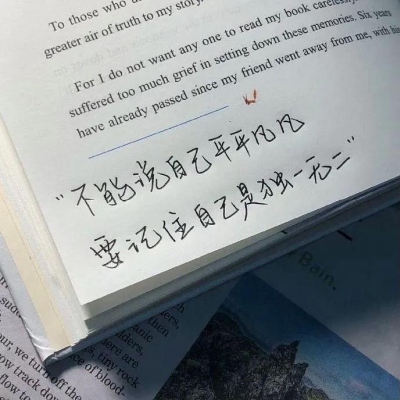 To those who
greater air of truth to my story.
For I do not want any one to read my book
suffered too much grief in setting down these memories. Six years
have already passed since my friend went away from me, with his
“不能说自己平平凡凡
要记住自己是独一无二”
Bain.
our, we turn off the
row track down
flow to
ders,
anic
here are
tiny rock
ce of blood-